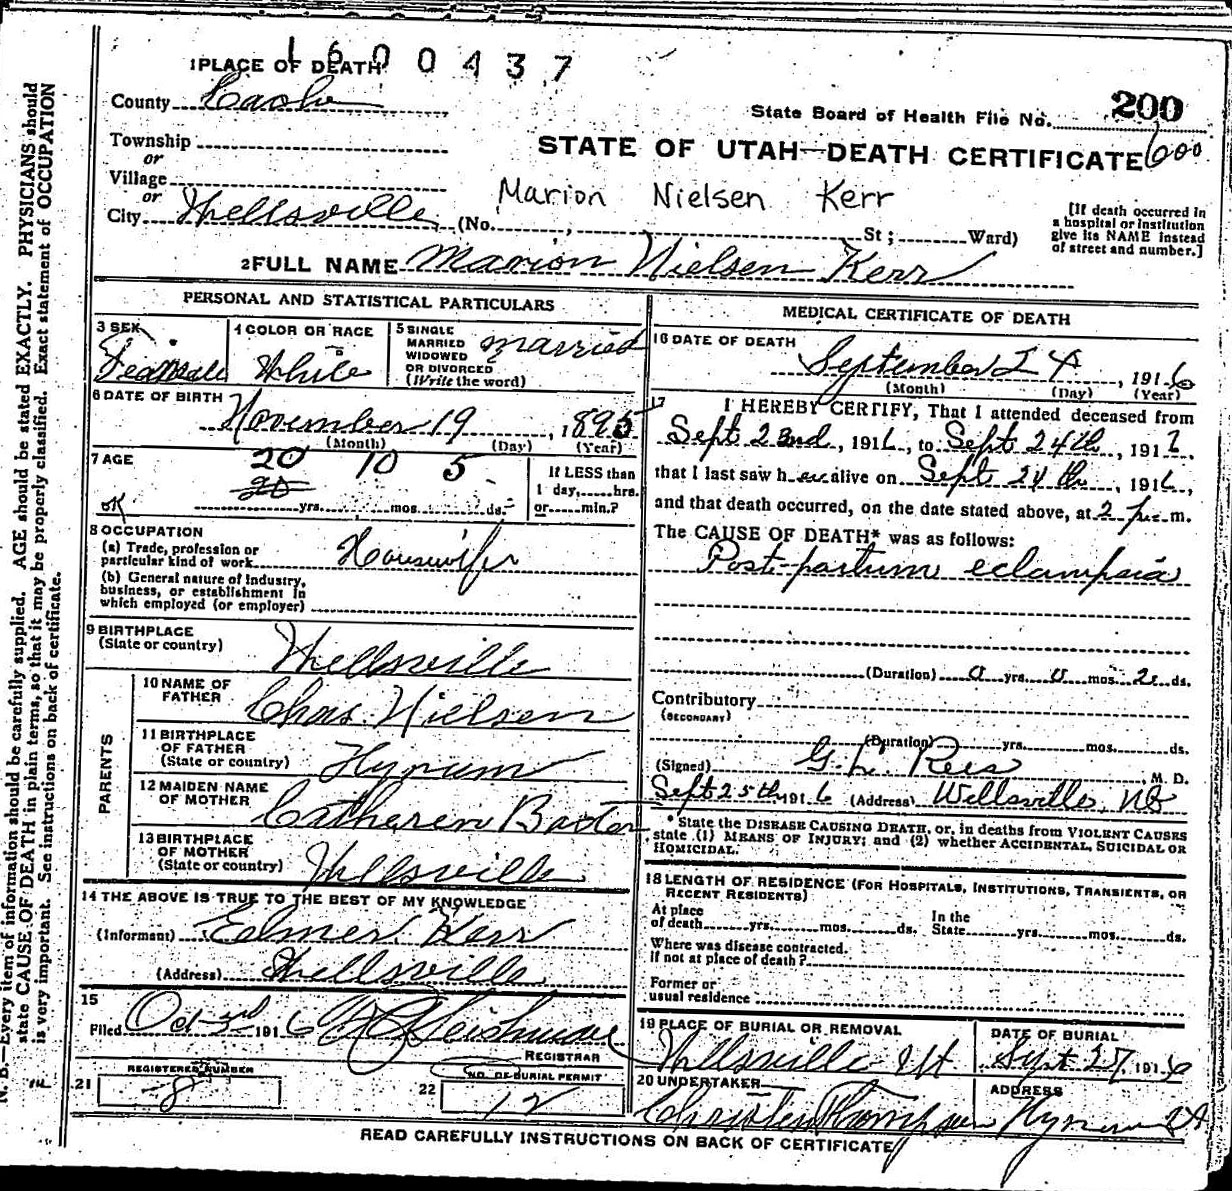 1600437
1 PLACE OF DEATH
County Cache
State Board of Health File No. 200
Township
or
STATE OF UTAH—DEATH CERTIFICATE 600
Village
or
Marion Nielsen Kerr
City Wellsville, (No. ; St ; Ward)
[If death occurred in
a hospital or institution
give its NAME instead
of street and number.]
2 FULL NAME Marion Nielsen Kerr
PERSONAL AND STATISTICAL PARTICULARS
3 SEX
Female
4 COLOR OR RACE
White
5 SINGLE
MARRIED
WIDOWED
OR DIVORCED
(Write the word)
married
6 DATE OF BIRTH
November 19, 1895
(Month) (Day) (Year)
7 AGE
20 10 5
20
OK yrs. mos. ds.
If LESS than
1 day, hrs.
or min.?
8 OCCUPATION
(a) Trade, profession or
particular kind of work Housewife
(b) General nature of industry,
business, or establishment in
which employed (or employer)
9 BIRTHPLACE
(State or country) Wellsville
PARENTS
10 NAME OF
FATHER Chas. Nielsen
11 BIRTHPLACE
OF FATHER
(State or country) Hyrum
12 MAIDEN NAME
OF MOTHER Catheren Baxter
13 BIRTHPLACE
OF MOTHER
(State or country) Wellsville
14 THE ABOVE IS TRUE TO THE BEST OF MY KNOWLEDGE
(Informant) Elmer Kerr
(Address) Wellsville
15
Filed Oct 3rd 1916 Leishman
REGISTRAR
21 REGISTERED NUMBER
8
22 NO. OF BURIAL PERMIT
12
MEDICAL CERTIFICATE OF DEATH
16 DATE OF DEATH
September 24, 1916
(Month) (Day) (Year)
17 I HEREBY CERTIFY, That I attended deceased from
Sept 22nd, 1916, to Sept 24th, 1916,
that I last saw her alive on Sept 24th, 1916,
and that death occurred, on the date stated above, at 2 p.m.
The CAUSE OF DEATH* was as follows:
Post-partum eclampsia
(Duration) 0 yrs. 0 mos. 2 ds.
Contributory
(SECONDARY)
(Duration) yrs. mos. ds.
(Signed) G. L. Rees, M. D.
Sept 25th, 1916 (Address) Wellsville,
* State the DISEASE CAUSING DEATH, or, in deaths from VIOLENT CAUSES
state (1) MEANS OF INJURY; and (2) whether ACCIDENTAL, SUICIDAL OR
HOMICIDAL.
18 LENGTH OF RESIDENCE (FOR HOSPITALS, INSTITUTIONS, TRANSIENTS, OR
RECENT RESIDENTS)
At place
of death yrs. mos. ds.
In the
State yrs. mos. ds.
Where was disease contracted.
if not at place of death?
Former or
usual residence
19 PLACE OF BURIAL OR REMOVAL
Wellsville Ut
DATE OF BURIAL
Sept 27, 1916
20 UNDERTAKER
ADDRESS
Hyrum
READ CAREFULLY INSTRUCTIONS ON BACK OF CERTIFICATE
N. B.—Every item of information should be carefully supplied. AGE should be stated EXACTLY. PHYSICIANS should
state CAUSE OF DEATH in plain terms, so that it may be properly classified. Exact statement of OCCUPATION
is very important. See instructions on back of certificate.